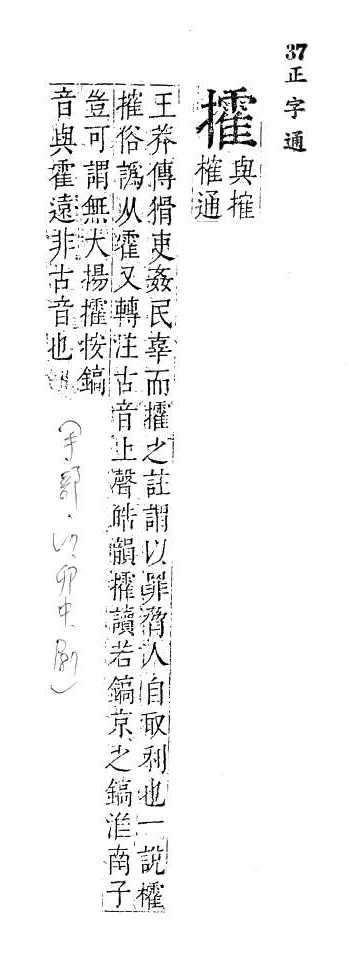 37正字通
攉
與搉
榷通
王莽傳猾吏姦民辜而攉之註謂以罪脅人自取利也一說攉
搉俗譌从霍又轉注古音上聲皓韻攉讀若鎬京之鎬淮南子
豈可謂無大揚攉按鎬
音與霍遠非古音也
(手部、